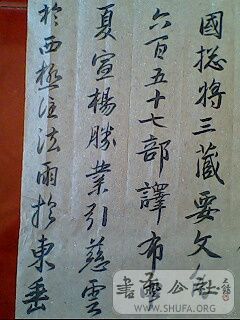 國揔將三藏要文凡
六百五十七部譯布
夏宣楊勝業引慈雲
於西極注法雨於東垂
书法江湖
WWW.SHUFA.ORG